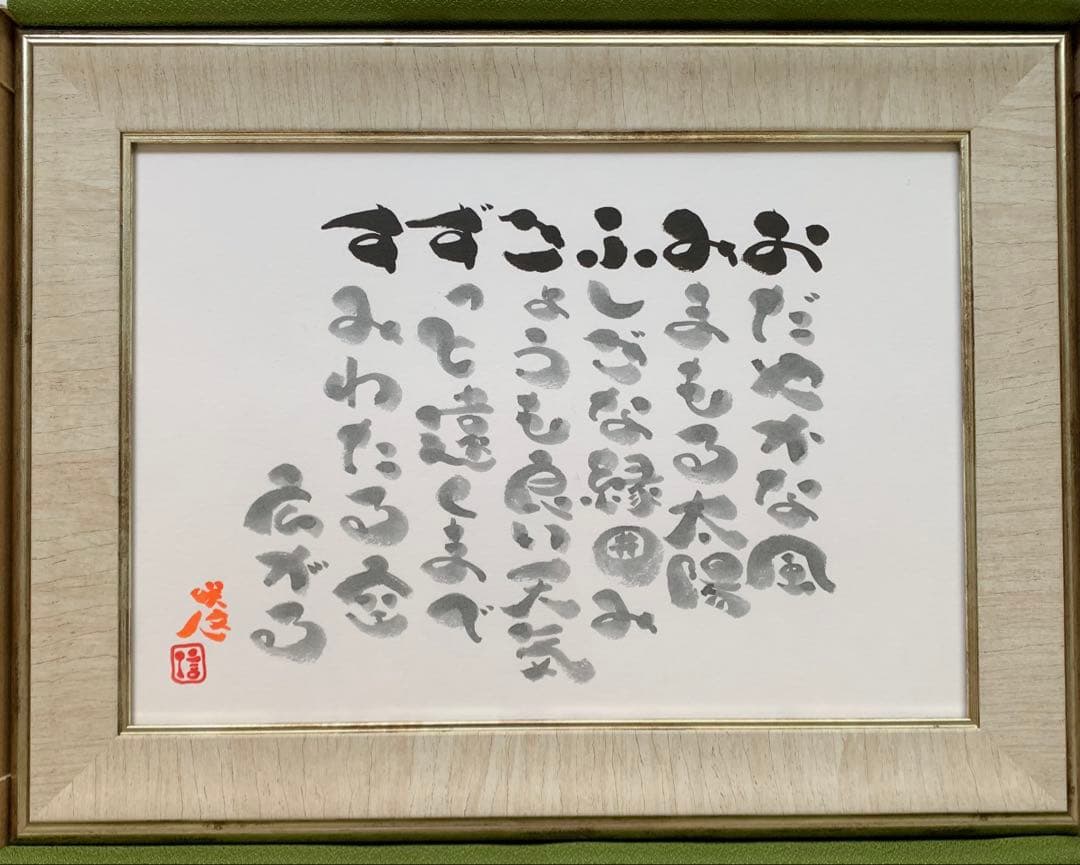 おだやかな風
みまもる太陽
ふしぎな縁囲み
きょうも良い天気
ずっと遠くまで
すみわたる空
広がる
信